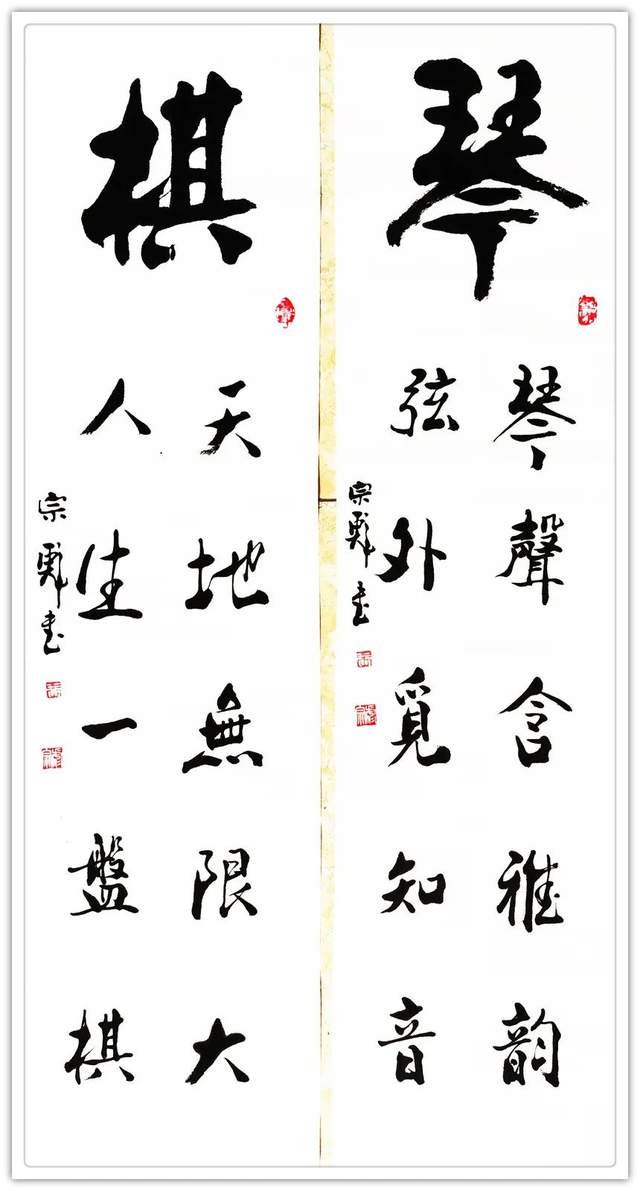 琴
琴聲含雅韵
弦外覓知音
宗 书
棋
天地無限大
人生一盤棋
宗 书